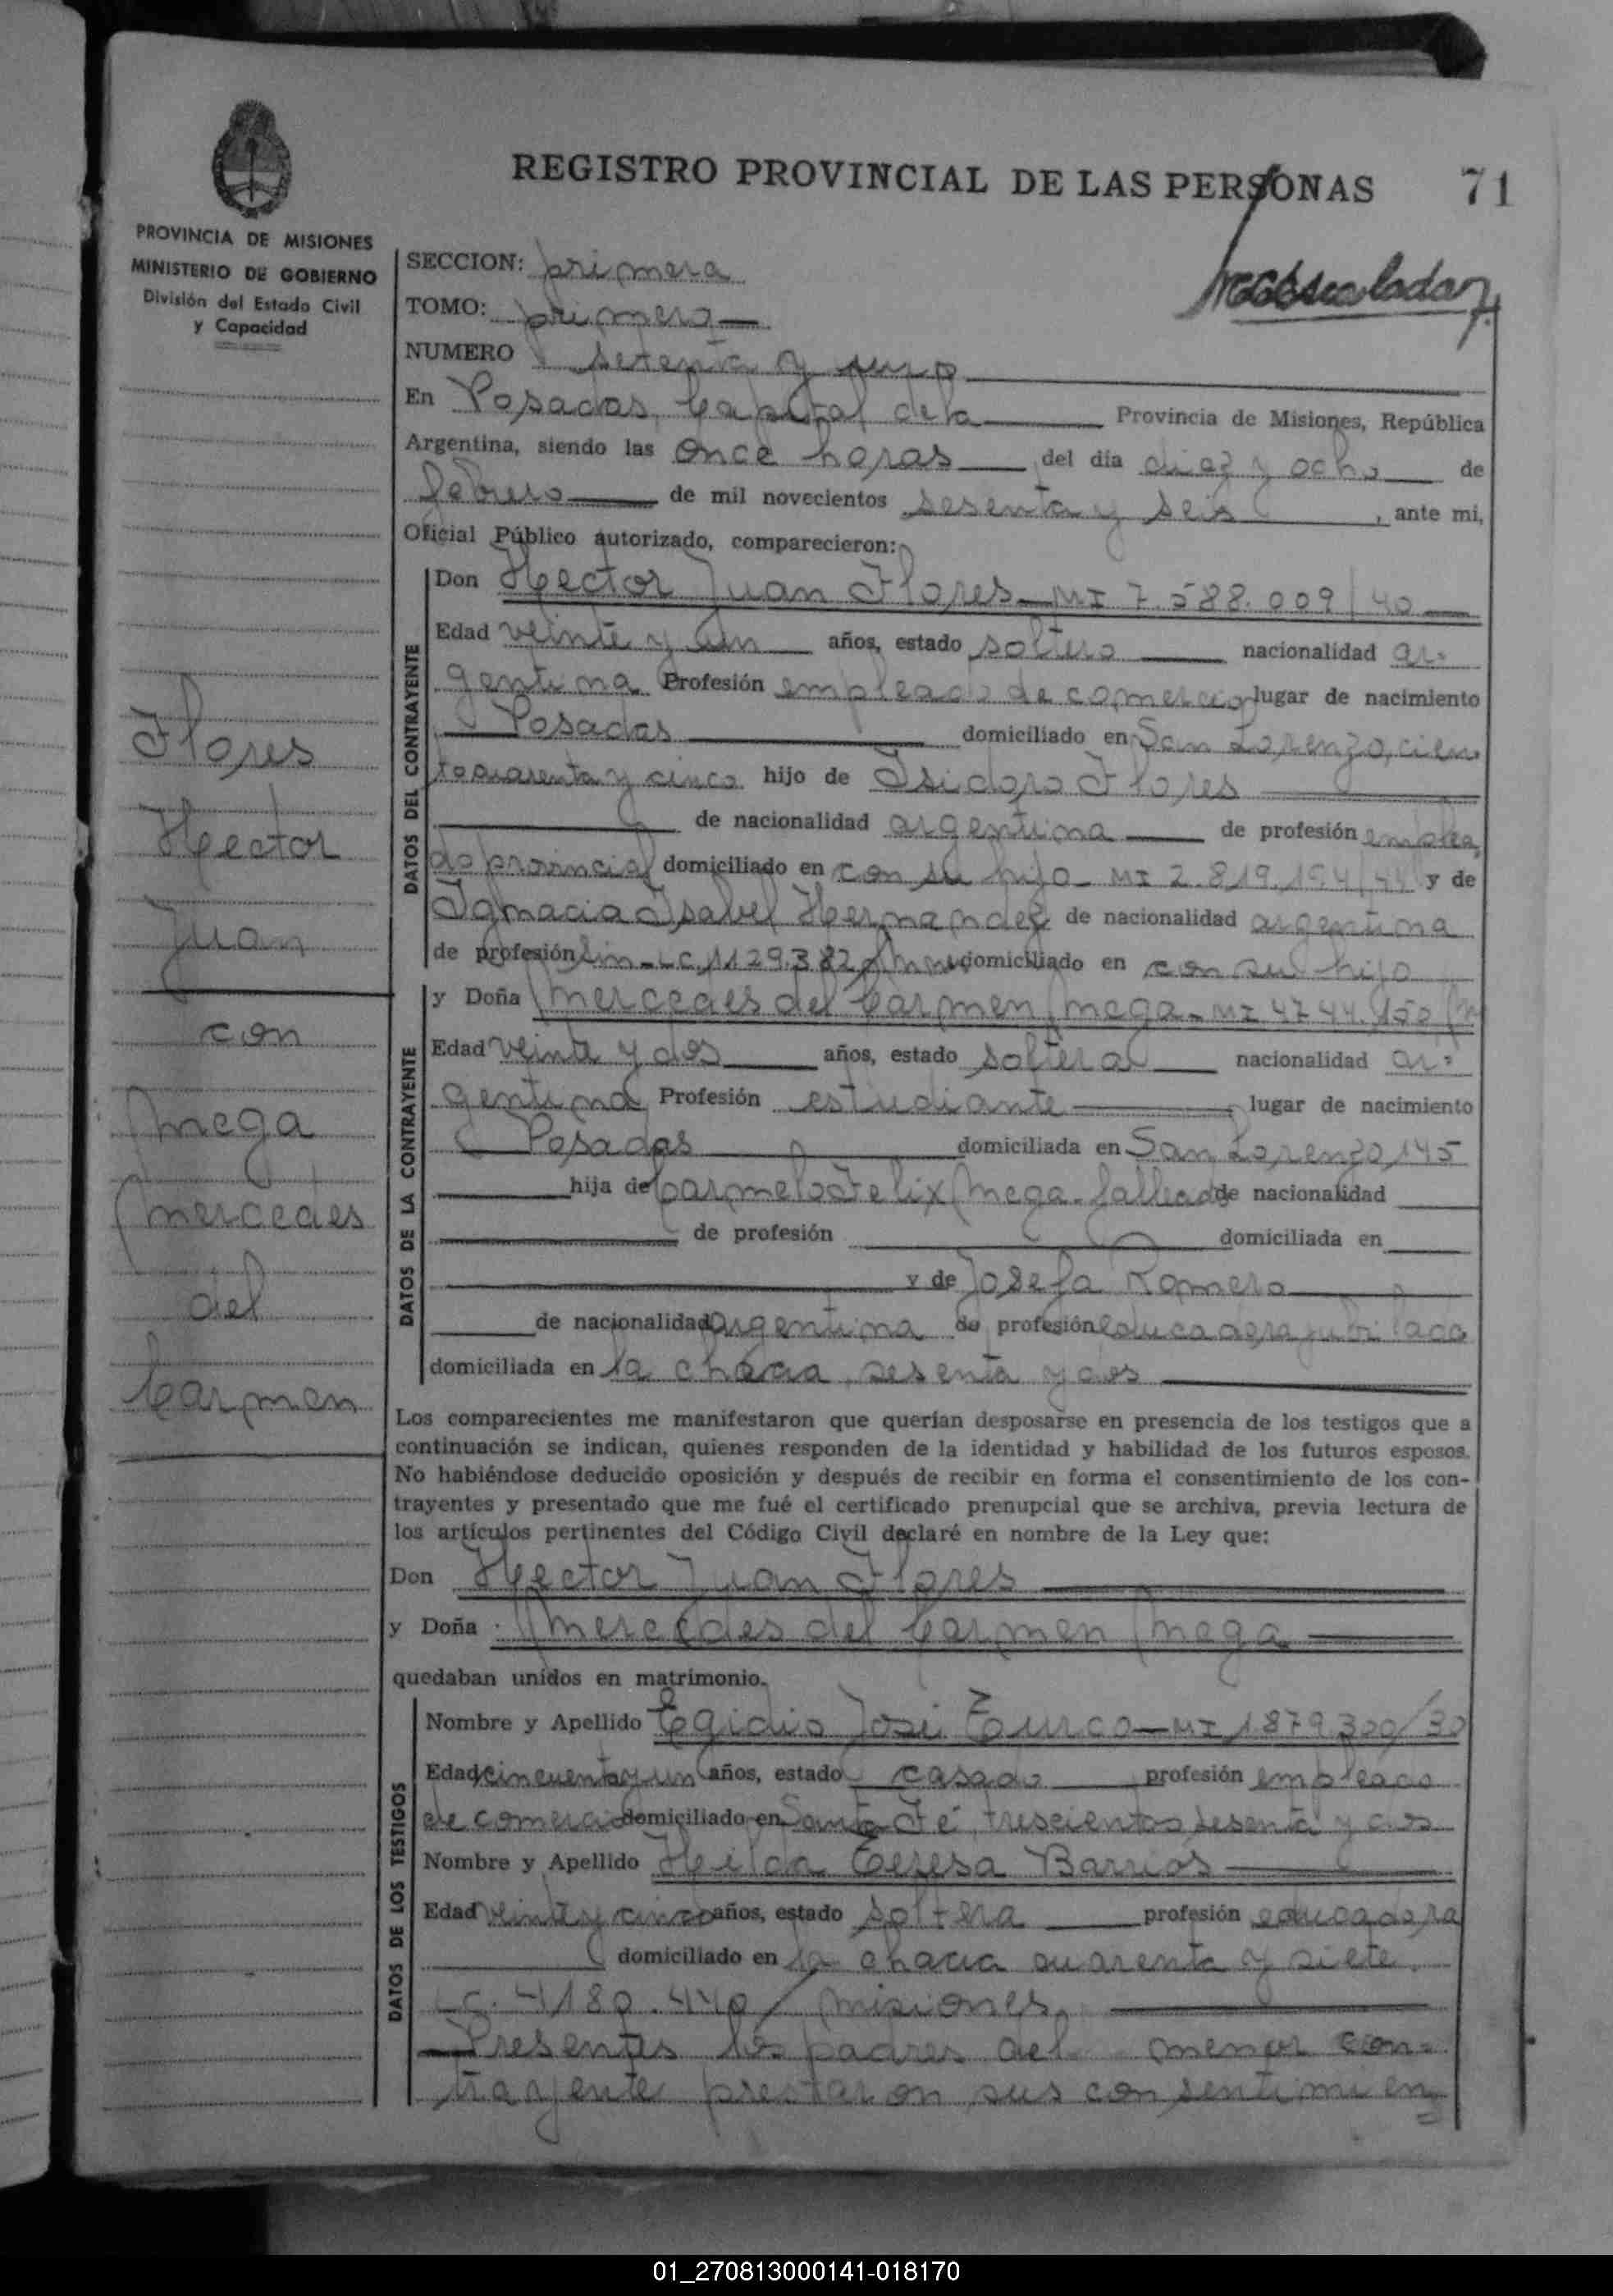 REGISTRO PROVINCIAL DE LAS PERSONAS 71
PROVINCIA DE MISIONES
MINISTERIO DE GOBIERNO
División del Estado Civil
y Capacidad
SECCION: primera
TOMO: primero
NUMERO setenta y uno
En Posadas, Capital de la Provincia de Misiones, República
Argentina, siendo las once horas del día diez y ocho de
febrero de mil novecientos sesenta y seis, ante mi,
Oficial Público autorizado, comparecieron:
DATOS DEL CONTRAYENTE
Don Hector Juan Flores - MI 7.588.009/40
Edad veinte y un años, estado soltero nacionalidad ar-
gentina Profesión empleado de comercio lugar de nacimiento
Posadas domiciliado en San Lorenzo, cien
to cuarenta y cinco hijo de Isidoro Flores
de nacionalidad argentina de profesión emplea
do provincial domiciliado en con su hijo - MI 2.819.194 y de
Ignacia Isabel Hernandez de nacionalidad argentina
de profesión sin - LC. 1129.382 domiciliado en con su hijo
DATOS DE LA CONTRAYENTE
y Doña Mercedes del Carmen Mega - MI 4744.150
Edad veinte y dos años, estado soltera nacionalidad ar-
gentina Profesión estudiante lugar de nacimiento
Posadas domiciliada en San Lorenzo 145
hija de Carmelo Felix Mega - fallecido de nacionalidad
de profesión domiciliada en
y de Josefa Romero
de nacionalidad argentina de profesión educadora jubilada
domiciliada en la chacra sesenta y dos
Los comparecientes me manifestaron que querían desposarse en presencia de los testigos que a
continuación se indican, quienes responden de la identidad y habilidad de los futuros esposos.
No habiéndose deducido oposición y después de recibir en forma el consentimiento de los con-
trayentes y presentado que me fué el certificado prenupcial que se archiva, previa lectura de
los artículos pertinentes del Código Civil declaré en nombre de la Ley que:
Don Hector Juan Flores
y Doña Mercedes del Carmen Mega
quedaban unidos en matrimonio.
DATOS DE LOS TESTIGOS
Nombre y Apellido Egidio José - MI 1879.300/30
Edad cincuenta y un años, estado casado profesión empleado
de comercio domiciliado en Santa Fé, trescientos sesenta y dos
Nombre y Apellido Hilda Teresa Barrios
Edad veinte y cinco años, estado soltera profesión educadora
domiciliado en la chacra cuarenta y siete.
LC. 4180.440/ misiones.
Presentes los padres del menor con-
trayente prestaron sus consentimien
Flores
Hector
Juan
con
Mega
Mercedes
del
Carmen
01_270813000141-018170